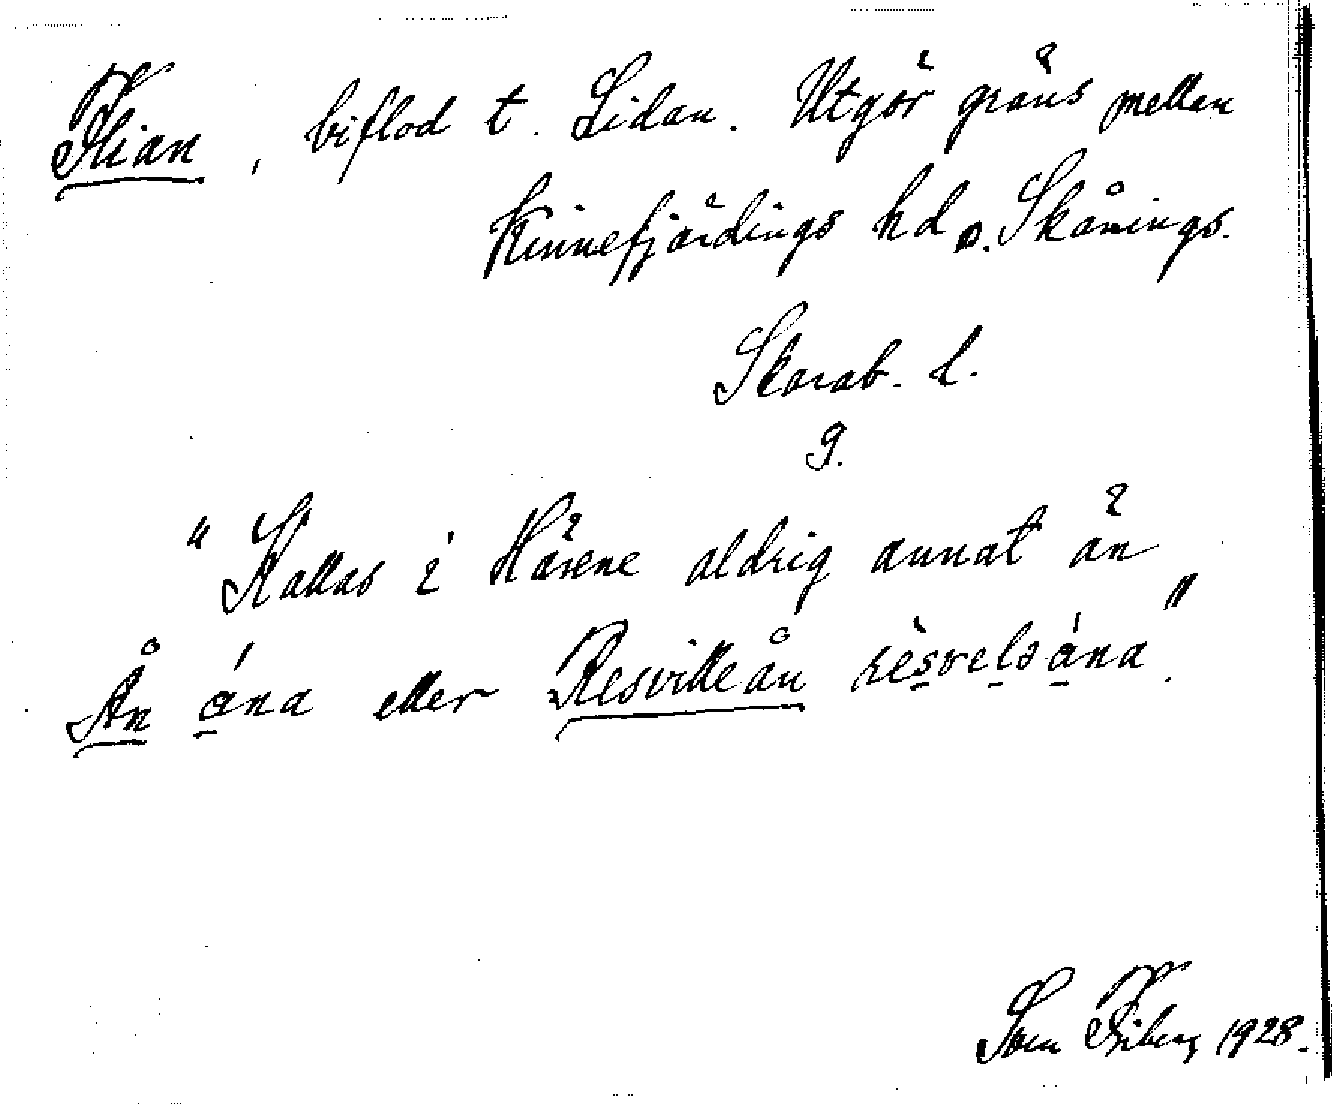 Flian, biflod t. Lidan. Utgör gräns mellan
Kinnefjärdings hd o. Skånings.
Skarab. l.
g.
"Kallas i Härene aldrig annat än
Ån ána eller Resvilleån rèsvelsána".
Sven Friberg 1928.